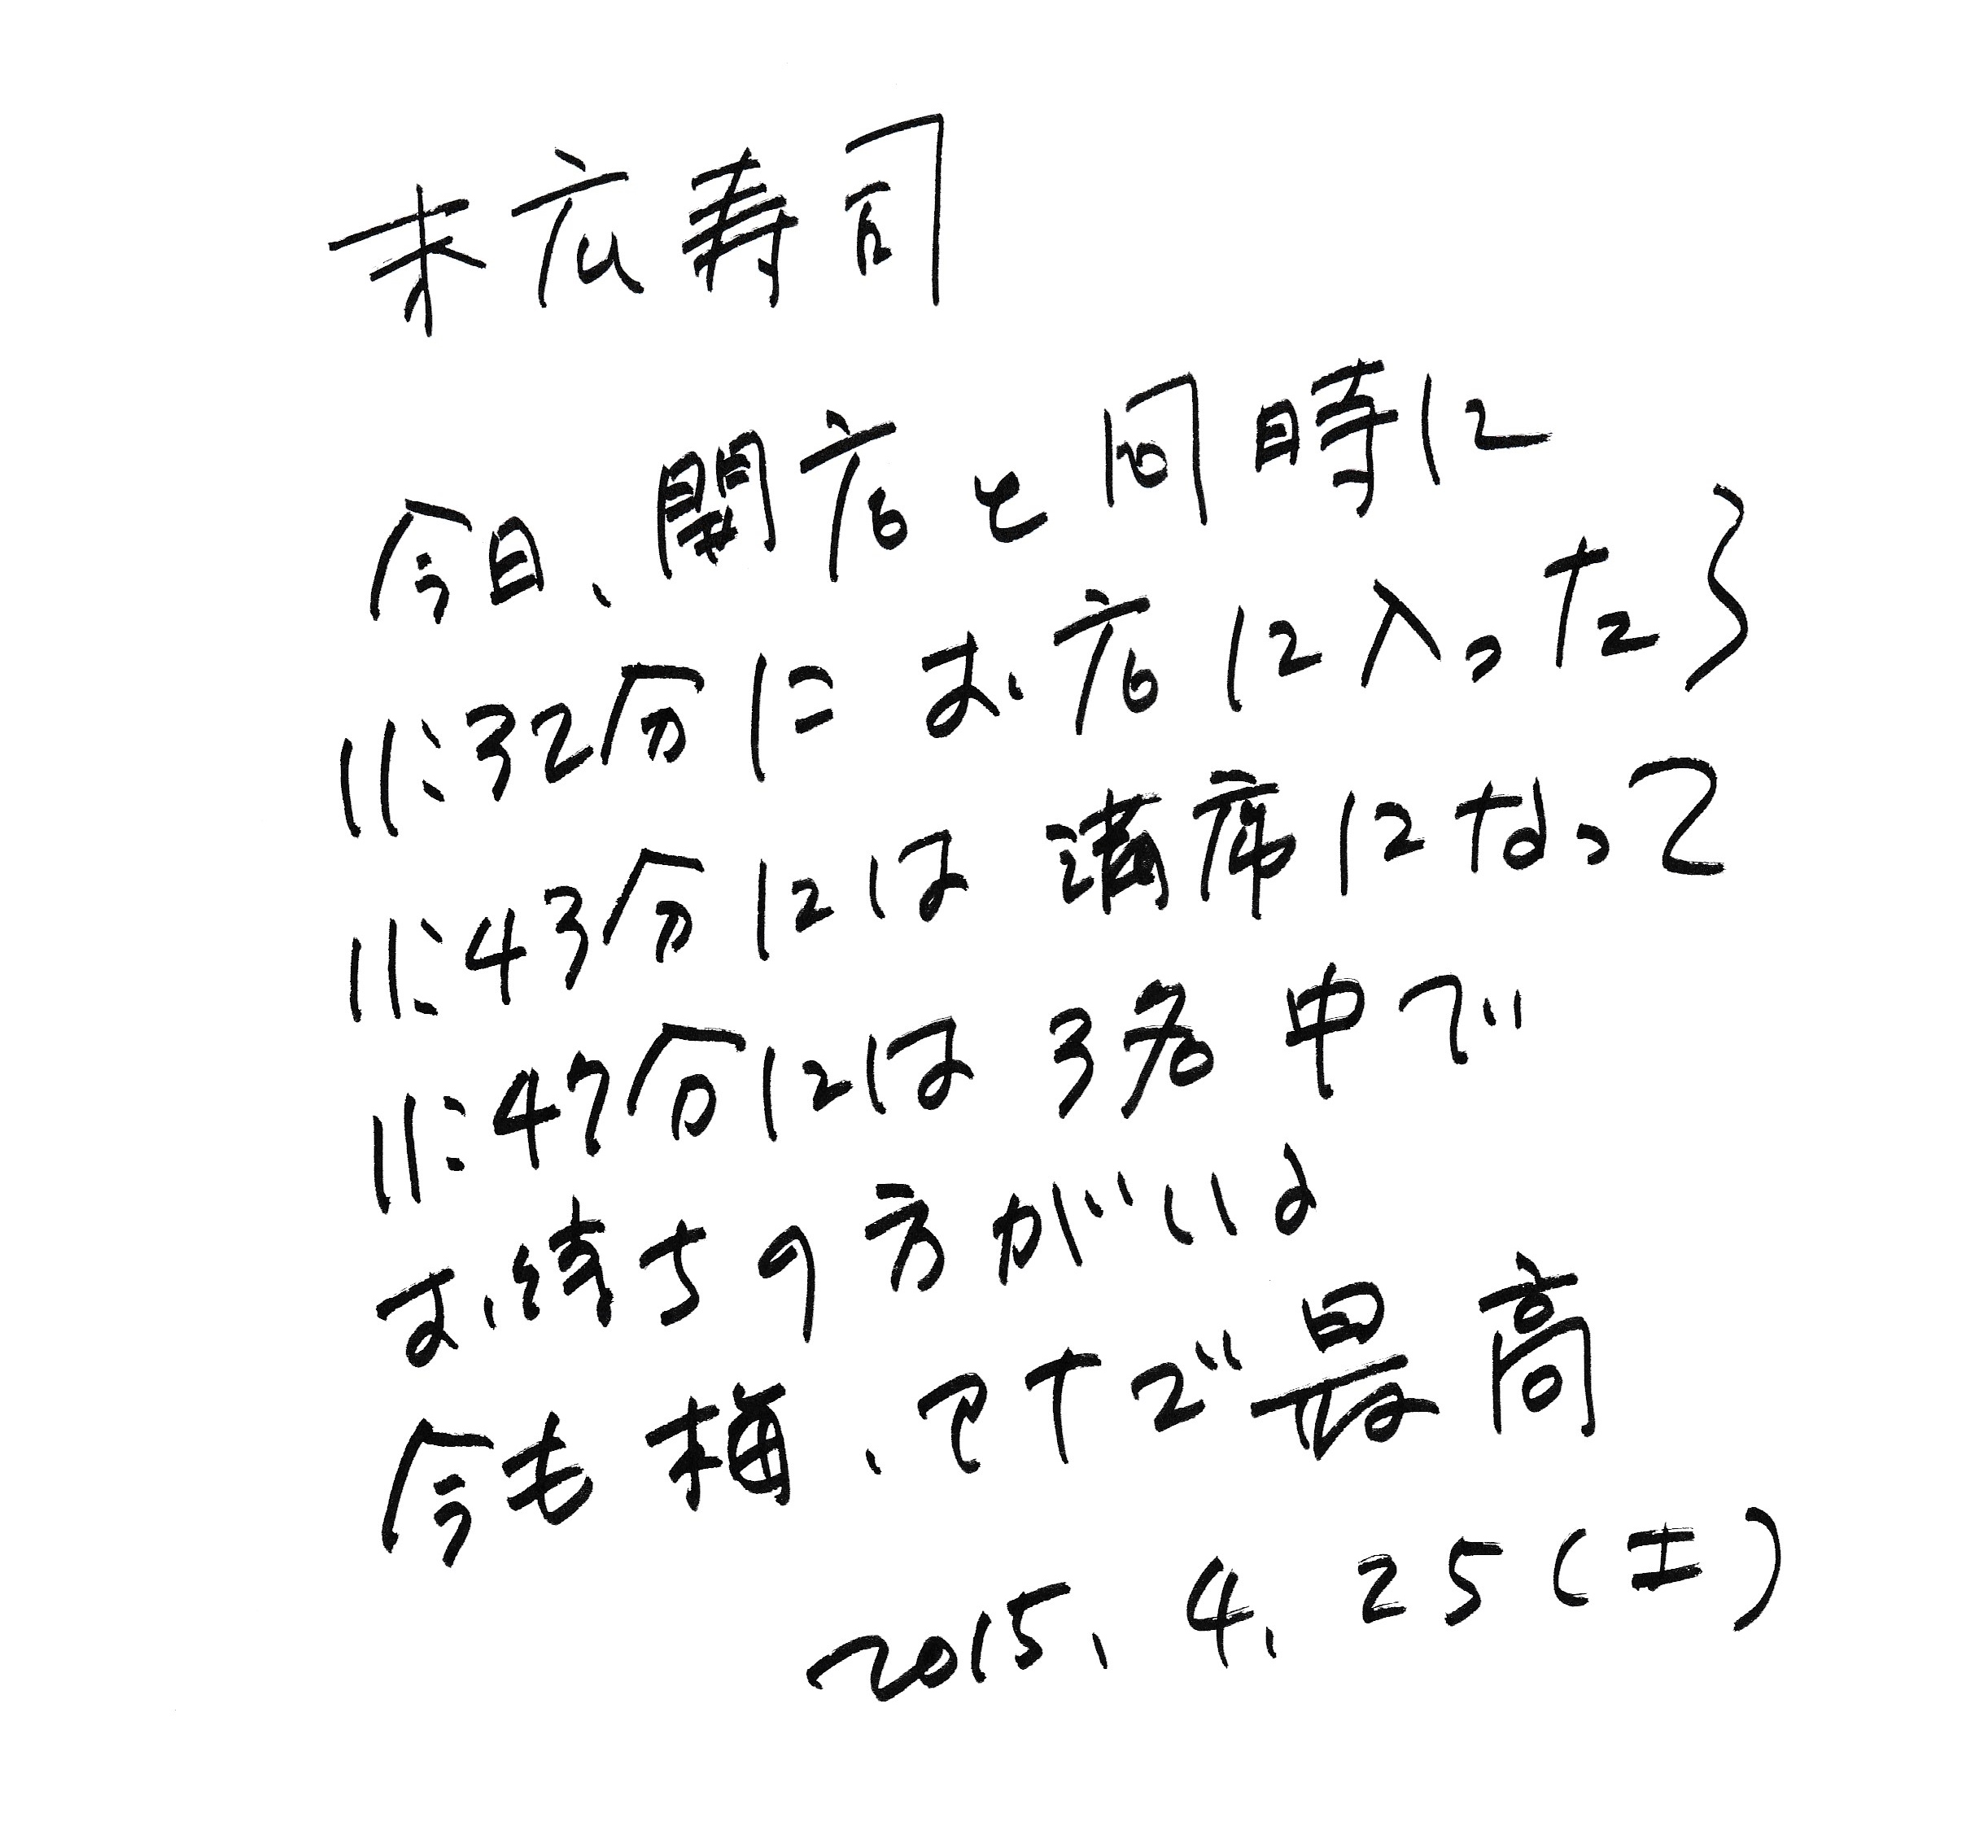 末広寿司
今日、開店と同時に
11:32分にお店に入ったら
11:43分には満席になって
11:47分には3名中で
お待ちの方がいよ
今も梅、マナで最高
2015.4.25(土)